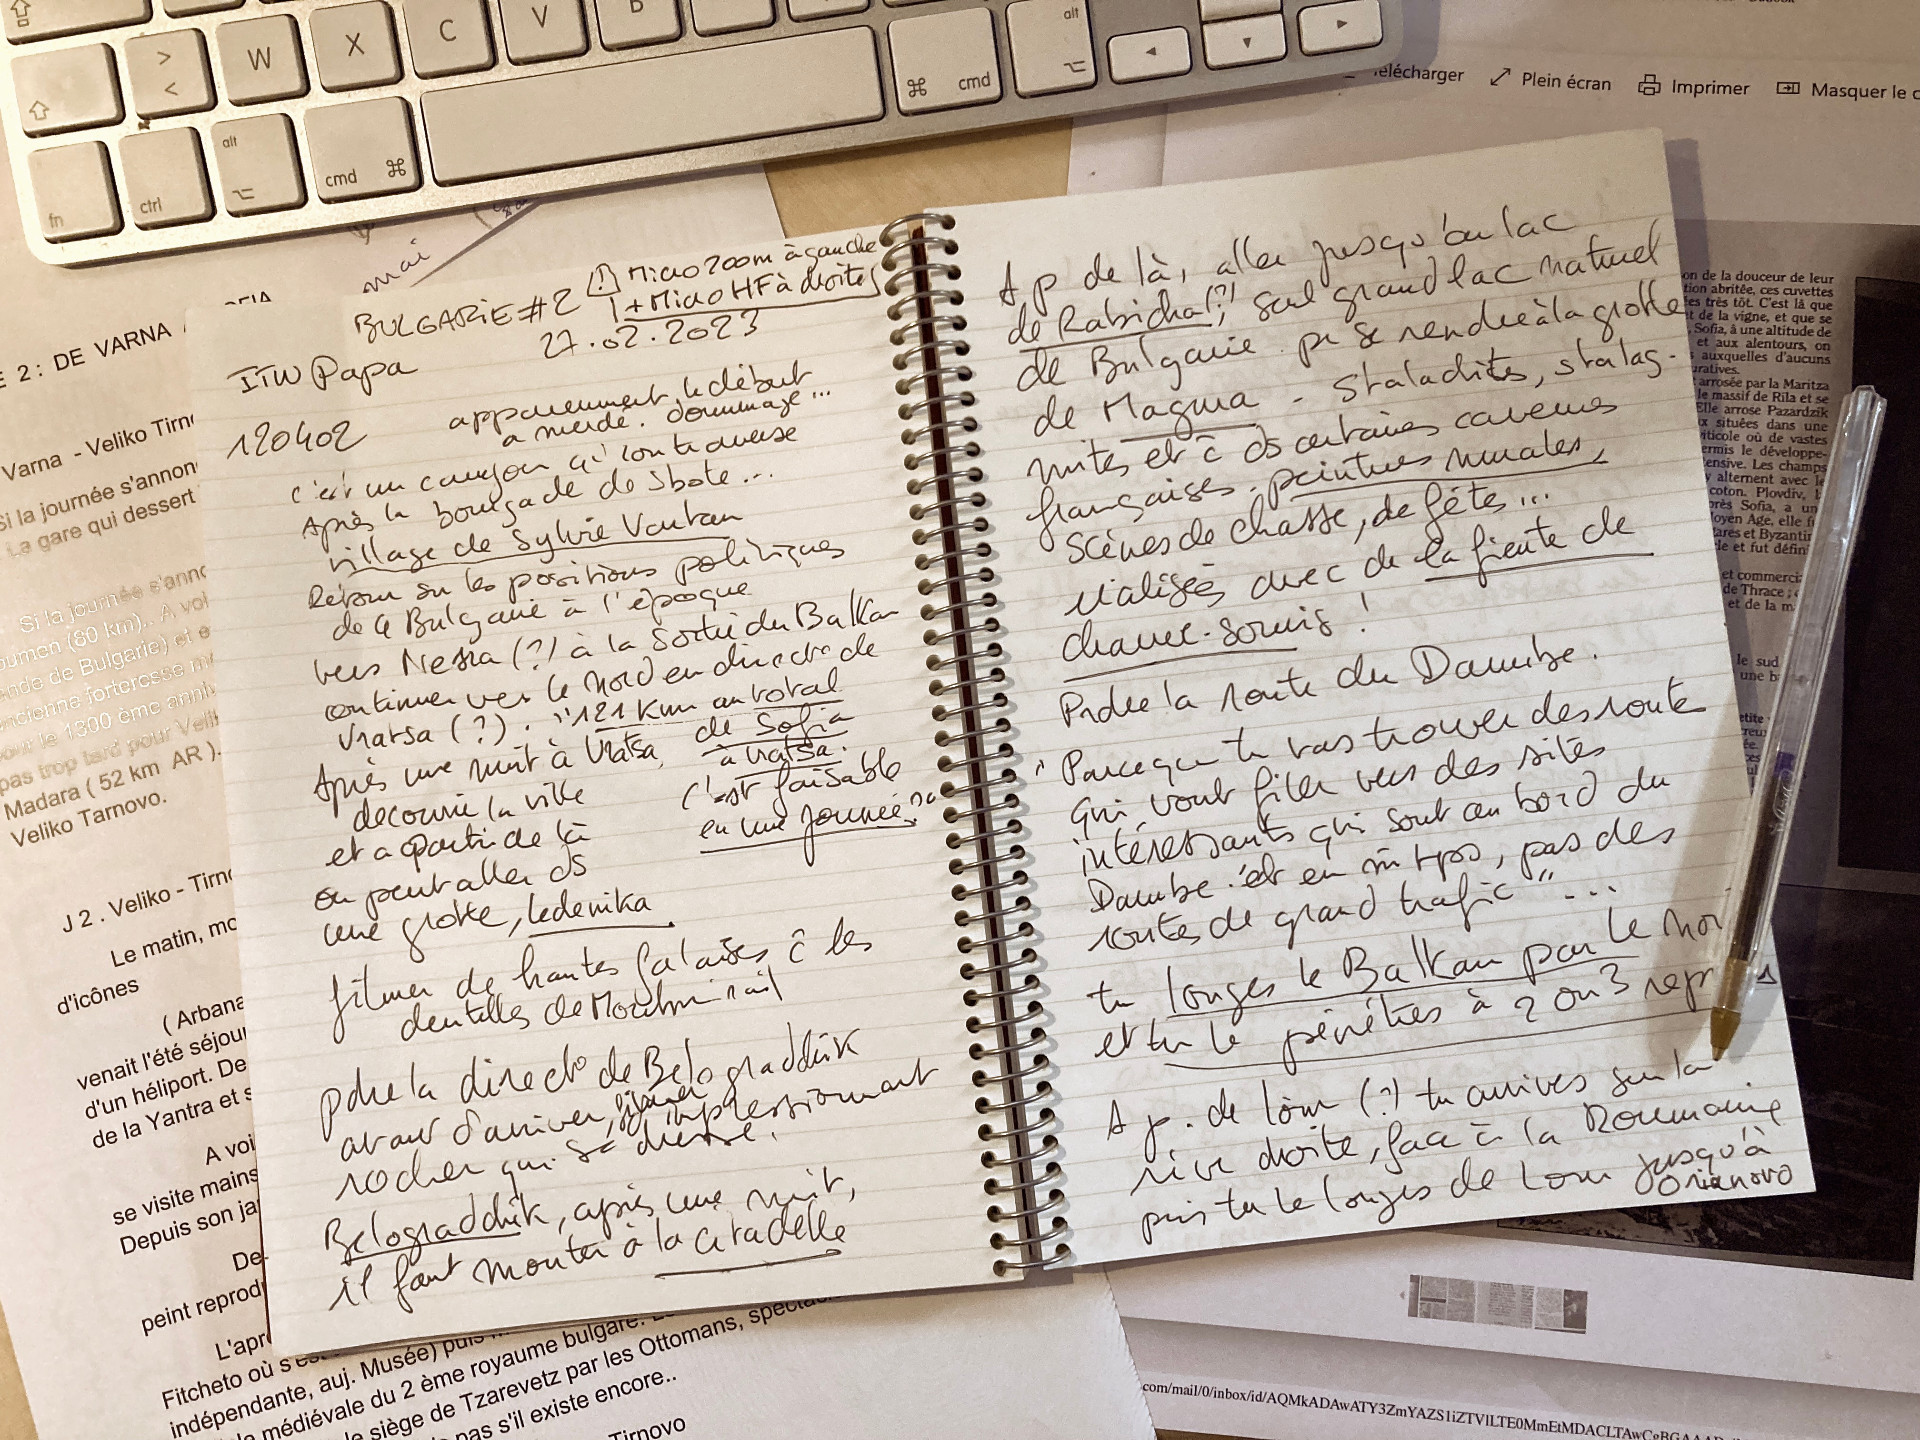 > < W X C V B
alt
cmd
fn ctrl alt cmd
Télécharger Plein écran Imprimer Masquer le c
mai
E 2 : DE VARNA A
Varna - Veliko Tirn
Si la journée s'annon
La gare qui dessert
Si la journée s'anno
oumen (80 km).. A vol
ende de Bulgarie) et e
ncienne forteresse
pour le 1300 ème anniv
pas trop tard pour Veli
Madara ( 52 km AR ).
Veliko Tarnovo.
J 2 . Veliko - Tirno
Le matin, mo
d'icônes
( Arbana
venait l'été séjour
d'un héliport. De
de la Yantra et s
A voi
se visite mains
Depuis son ja
De
peint reprod
L'apr
Fitcheto où s'est
indépendante, auj. Musée) puis
médiévale du 2 ème royaume bulgare.
le siège de Tzarevetz par les Ottomans, spectac
pas s'il existe encore..
Tirnovo
BULGARIE #2 (!) Micro zoom à gauche
+ Micro HF à droite
27.02.2023
ITW Papa
120402 apparemment, le début
a merdé. dommage...
c'est un canyon qu'on traverse
Après la bourgade de Sbote...
village de Sylvie Vartan
Retour sur les positions politiques
de la Bulgarie à l'époque
vers Nesra (?) à la sortie du Balkan
continuer vers le Nord en directo de
Vratsa (?). "121 km au total
de Sofia
à Vratsa.
c'est faisable
en une journée"
Après une nuit à Vratsa,
découvrir la ville
et a partir de là
on peut aller ds
une grotte, Ledenika
filmer de hautes falaises ê les
dentelles de Montmirail
pdre la directo de Belograddhik
avant d'arriver, filmer impressionnant
rocher qui se dresse.
Belograddhik, après une nuit,
il faut monter à la citadelle
A p de là, aller jusqu'au lac
de Rabicha (?), seul grand lac naturel
de Bulgarie. pr se rendre à la grotte
de Magura - Stalactites, stalag-
mites et ê ds certaines cavernes
françaises. peintures murales,
Scènes de chasse, de fêtes...
réalisés avec de la fiente de
chauve-souris !
Prdre la route du Danube.
" Parce que tu vas trouver des route
qui vont filer vers des sites
intéressants qui sont au bord du
Danube et en m̂ tps, pas des
routes de grand trafic "...
tu longes le Balkan par le Nor
et tu le pénètres à 2 ou 3 repr
A p. de Lom (?) tu arrives sur la
rive droite, face à la Roumanie
puis tu le longes de Lom jusqu'à
Orianovo
on de la douceur de leur
tion abritée, ces cuvettes
es très tôt. C'est là que
t de la vigne, et que se
Sofia, à une altitude de
et aux alentours, on
auxquelles d'aucuns
uratives.
arrosée par la Maritza
le massif de Rila et se
Elle arrose Pazardzik
x situées dans une
iticole où de vastes
ermis le développe-
ensive. Les champs
y alternent avec le
coton. Plovdiv,
près Sofia, a un
oyen Age, elle f
ares et Byzantin
le et fut défin
et commerci
de Thrace ;
et de la m
le sud
une b
com/mail/0/inbox/id/AQMkADAwATY3ZmYAZS1iZTVlLTE0MmEtMDACLTAwCgBGAAAD